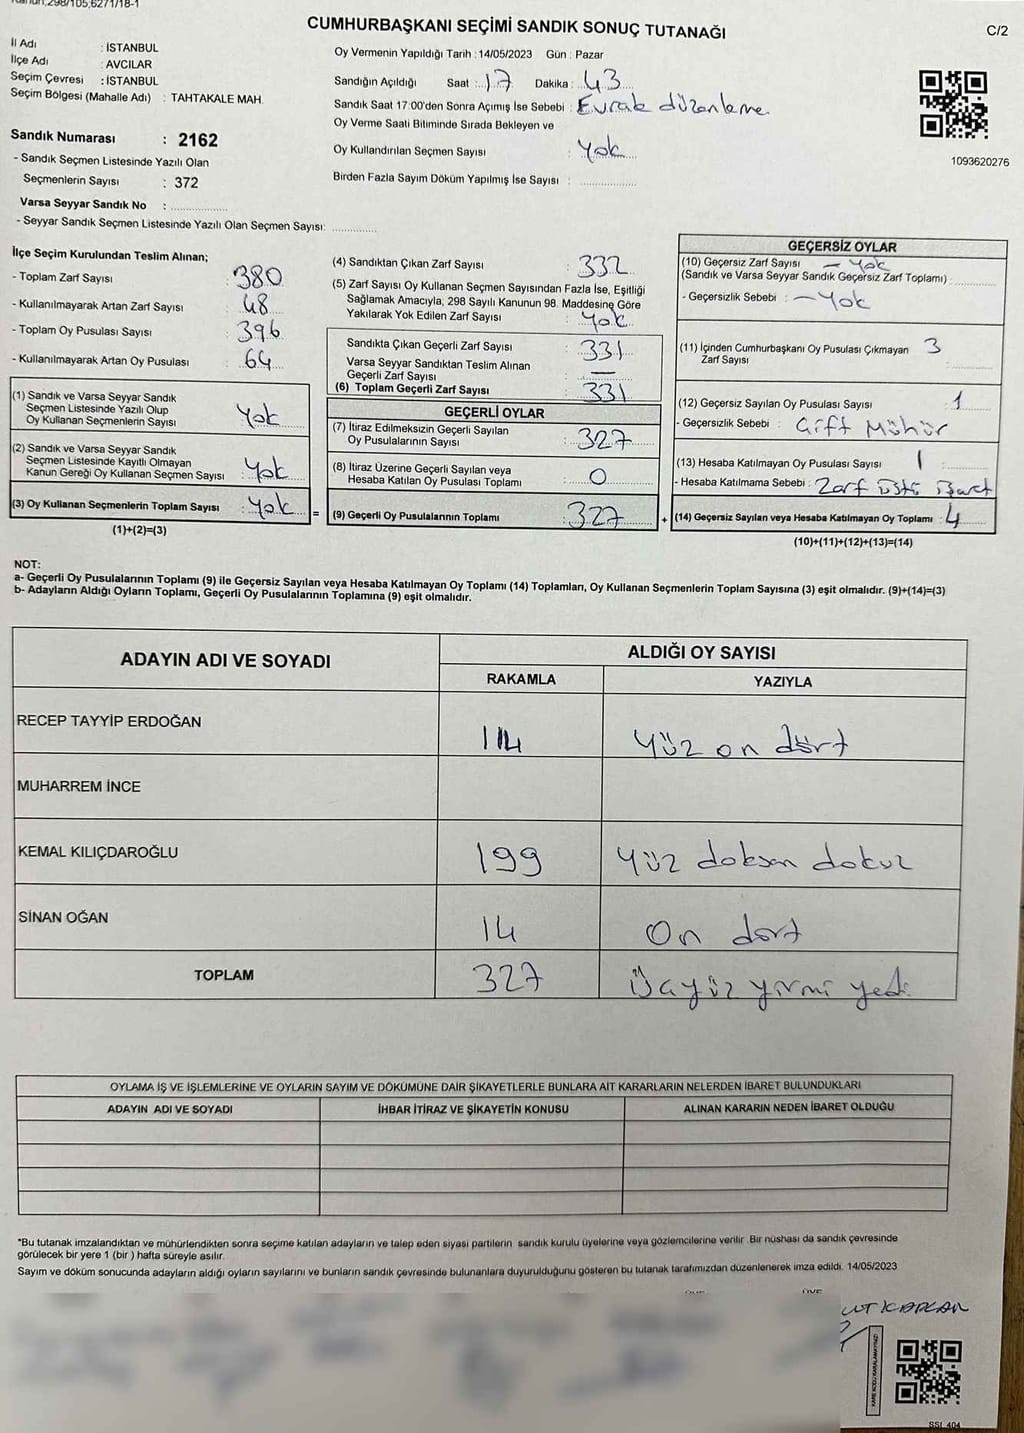 Kanun,298/105,6271/18-1
CUMHURBAŞKANI SEÇİMİ SANDIK SONUÇ TUTANAĞI
C/2
İl Adı : İSTANBUL
İlçe Adı : AVCILAR
Seçim Çevresi : İSTANBUL
Seçim Bölgesi (Mahalle Adı) : TAHTAKALE MAH.
Sandık Numarası : 2162
- Sandık Seçmen Listesinde Yazılı Olan
Seçmenlerin Sayısı : 372
Varsa Seyyar Sandık No :
- Seyyar Sandık Seçmen Listesinde Yazılı Olan Seçmen Sayısı:
Oy Vermenin Yapıldığı Tarih : 14/05/2023 Gün : Pazar
Sandığın Açıldığı Saat : 17 Dakika : 43
Sandık Saat 17:00'den Sonra Açımış İse Sebebi : Evrak düzenleme
Oy Verme Saati Bitiminde Sırada Bekleyen ve
Oy Kullandırılan Seçmen Sayısı : Yok
Birden Fazla Sayım Döküm Yapılmış İse Sayısı :
1093620276
İlçe Seçim Kurulundan Teslim Alınan;
- Toplam Zarf Sayısı : 380
- Kullanılmayarak Artan Zarf Sayısı : 48
- Toplam Oy Pusulası Sayısı : 396
- Kullanılmayarak Artan Oy Pusulası : 64
(1) Sandık ve Varsa Seyyar Sandık
Seçmen Listesinde Yazılı Olup
Oy Kullanan Seçmenlerin Sayısı : Yok
(2) Sandık ve Varsa Seyyar Sandık
Seçmen Listesinde Kayıtlı Olmayan
Kanun Gereği Oy Kullanan Seçmen Sayısı : Yok
(3) Oy Kullanan Seçmenlerin Toplam Sayısı : Yok
(1)+(2)=(3)
=
(4) Sandıktan Çıkan Zarf Sayısı : 332
(5) Zarf Sayısı Oy Kullanan Seçmen Sayısından Fazla İse, Eşitliği
Sağlamak Amacıyla; 298 Sayılı Kanunun 98. Maddesine Göre
Yakılarak Yok Edilen Zarf Sayısı : Yok
Sandıkta Çıkan Geçerli Zarf Sayısı : 331
Varsa Seyyar Sandıktan Teslim Alınan
Geçerli Zarf Sayısı : —
(6) Toplam Geçerli Zarf Sayısı : 331
GEÇERLİ OYLAR
(7) İtiraz Edilmeksizin Geçerli Sayılan
Oy Pusulalarının Sayısı : 327
(8) İtiraz Üzerine Geçerli Sayılan veya
Hesaba Katılan Oy Pusulası Toplamı : 0
(9) Geçerli Oy Pusulalarının Toplamı : 327
+
GEÇERSİZ OYLAR
(10) Geçersiz Zarf Sayısı : — Yok
(Sandık ve Varsa Seyyar Sandık Geçersiz Zarf Toplamı) :
- Geçersizlik Sebebi : — Yok
(11) İçinden Cumhurbaşkanı Oy Pusulası Çıkmayan 3
Zarf Sayısı :
(12) Geçersiz Sayılan Oy Pusulası Sayısı : 1
- Geçersizlik Sebebi : Çift Mühür
(13) Hesaba Katılmayan Oy Pusulası Sayısı : 1
- Hesaba Katılmama Sebebi : Zarf üstü işaret
(14) Geçersiz Sayılan veya Hesaba Katılmayan Oy Toplamı : 4
(10)+(11)+(12)+(13)=(14)
NOT:
a- Geçerli Oy Pusulalarının Toplamı (9) ile Geçersiz Sayılan veya Hesaba Katılmayan Oy Toplamı (14) Toplamları, Oy Kullanan Seçmenlerin Toplam Sayısına (3) eşit olmalıdır. (9)+(14)=(3)
b- Adayların Aldığı Oyların Toplamı, Geçerli Oy Pusulalarının Toplamına (9) eşit olmalıdır.
ADAYIN ADI VE SOYADI
ALDIĞI OY SAYISI
RAKAMLA YAZIYLA
RECEP TAYYİP ERDOĞAN 114 Yüz on dört
MUHARREM İNCE
KEMAL KILIÇDAROĞLU 199 Yüz doksan dokuz
SİNAN OĞAN 14 On dört
TOPLAM 327 Üçyüz yirmi yedi
OYLAMA İŞ VE İŞLEMLERİNE VE OYLARIN SAYIM VE DÖKÜMÜNE DAİR ŞİKAYETLERLE BUNLARA AİT KARARLARIN NELERDEN İBARET BULUNDUKLARI
ADAYIN ADI VE SOYADI İHBAR İTİRAZ VE ŞİKAYETİN KONUSU ALINAN KARARIN NEDEN İBARET OLDUĞU
*Bu tutanak imzalandıktan ve mühürlendikten sonra seçime katılan adayların ve talep eden siyasi partilerin sandık kurulu üyelerine veya gözlemcilerine verilir. Bir nüshası da sandık çevresinde
görülecek bir yere 1 (bir ) hafta süreyle asılır.
Sayım ve döküm sonucunda adayların aldığı oyların sayılarını ve bunların sandık çevresinde bulunanlara duyurulduğunu gösteren bu tutanak tarafımızdan düzenlenerek imza edildi. 14/05/2023
KAPLAN
KARE KODU KARALAMAYINIZ!
SSI_404